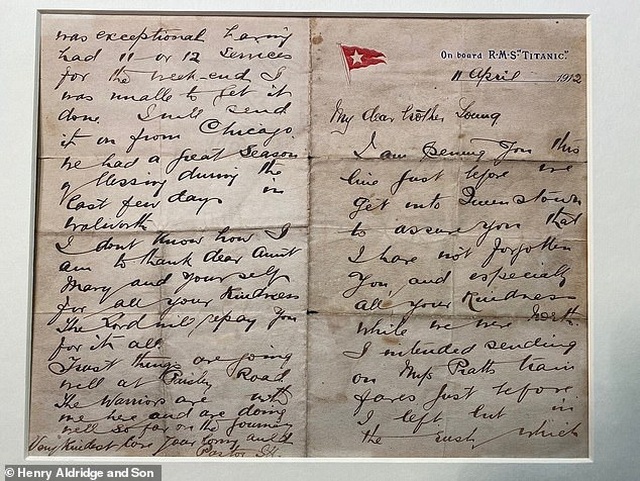 On board R.M.S. "TITANIC."
11 April 1912
My dear brother Young
I am penning you this
line just before we
get into Queenstown
to assure you that
I have not forgotten
you and especially
all your kindness
while we were North.
I intended sending
on Miss Pratts train
fares just before
I left but in
the rush which
was exceptional having
had 11 or 12 services
for the week-end I
was unable to get it
done I will send
it on from Chicago.
we had a great season
of blessing during the
last few days in
Walworth
I dont know how I
am to thank dear Aunt
Mary and yourself
for all your kindness
The Lord will repay you
for it all.
Trust things are going
well at Paisley Road.
The Warriors are with
me here and are doing
well so far on the journey
Very kindest love your loving auld
Pastor J.H.
Henry Aldridge and Son